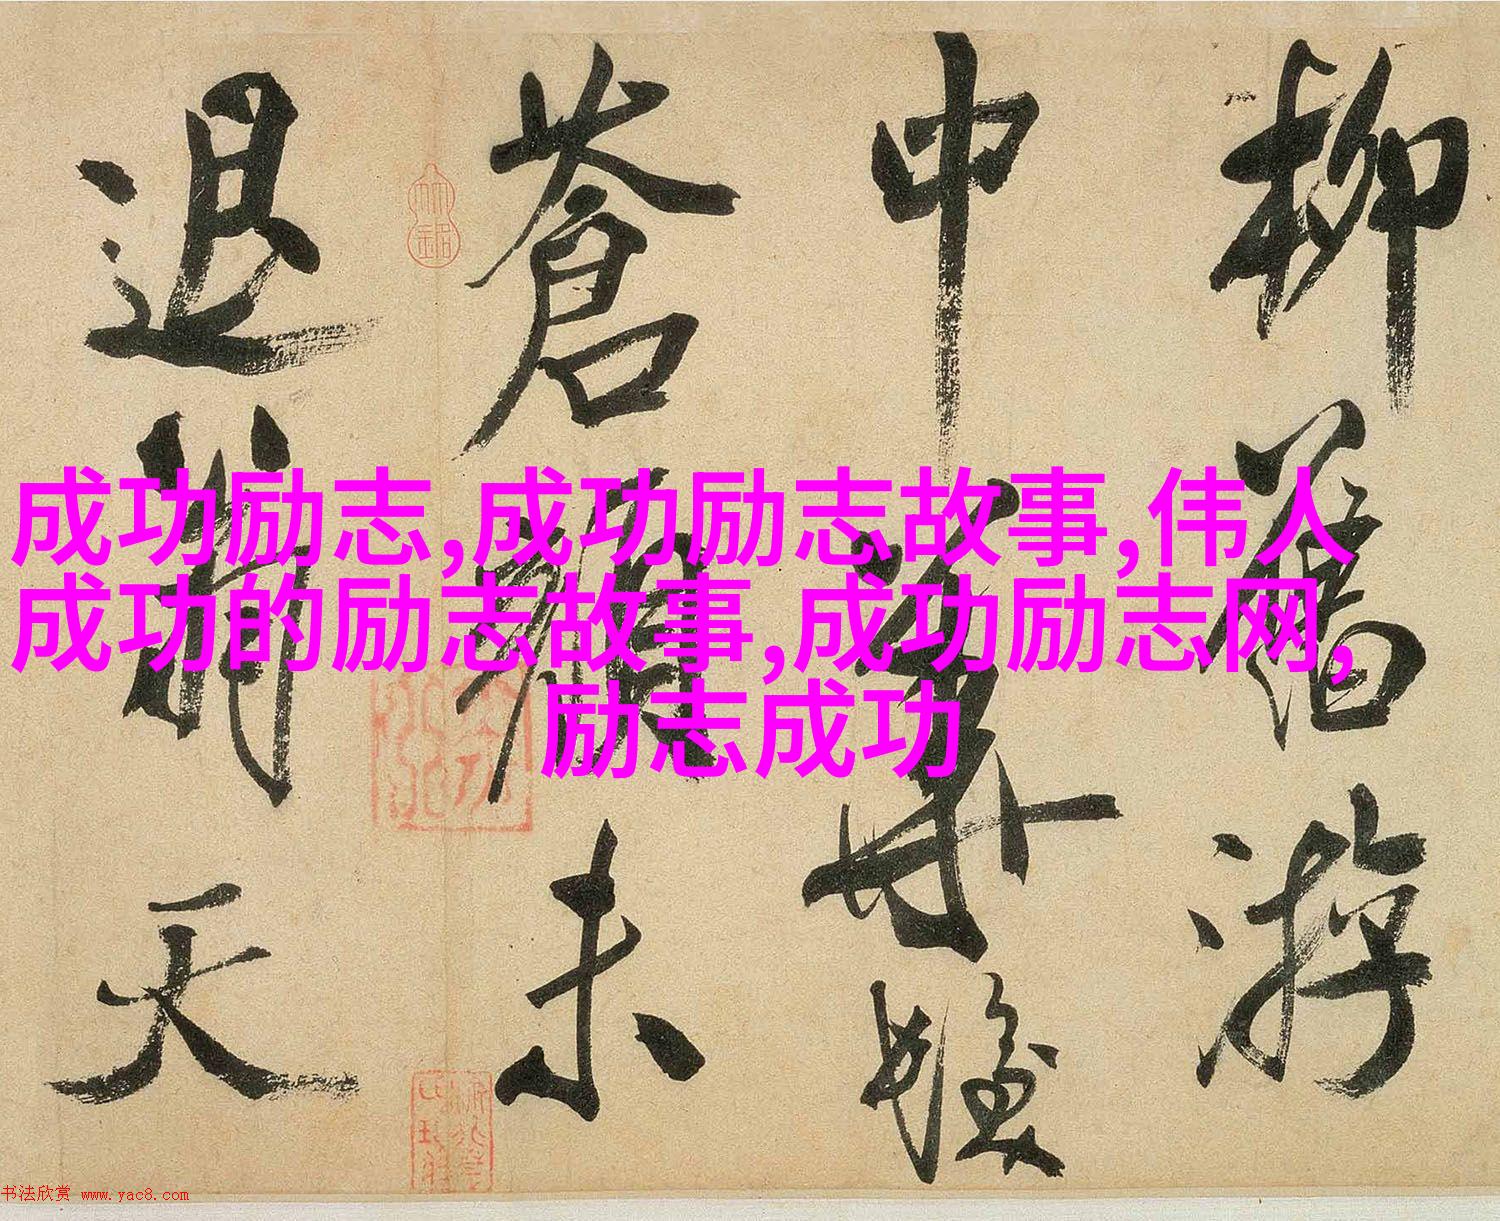 柳舊游
中華
蒼顏未
退天
成功励志,成功励志故事,伟人
成功的励志故事,成功励志网,
励志成功
书法欣赏 www.yac8.com